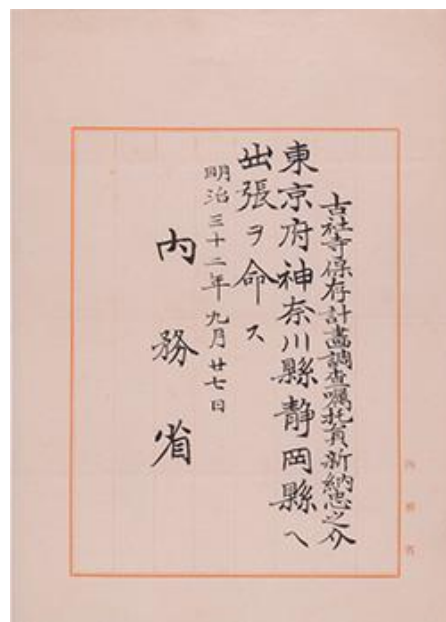 古社寺保存計畫調査嘱託員新納忠之介
東京府神奈川縣静岡縣へ
出張ヲ命ス
明治三十二年九月廿七日
内務省
内務省